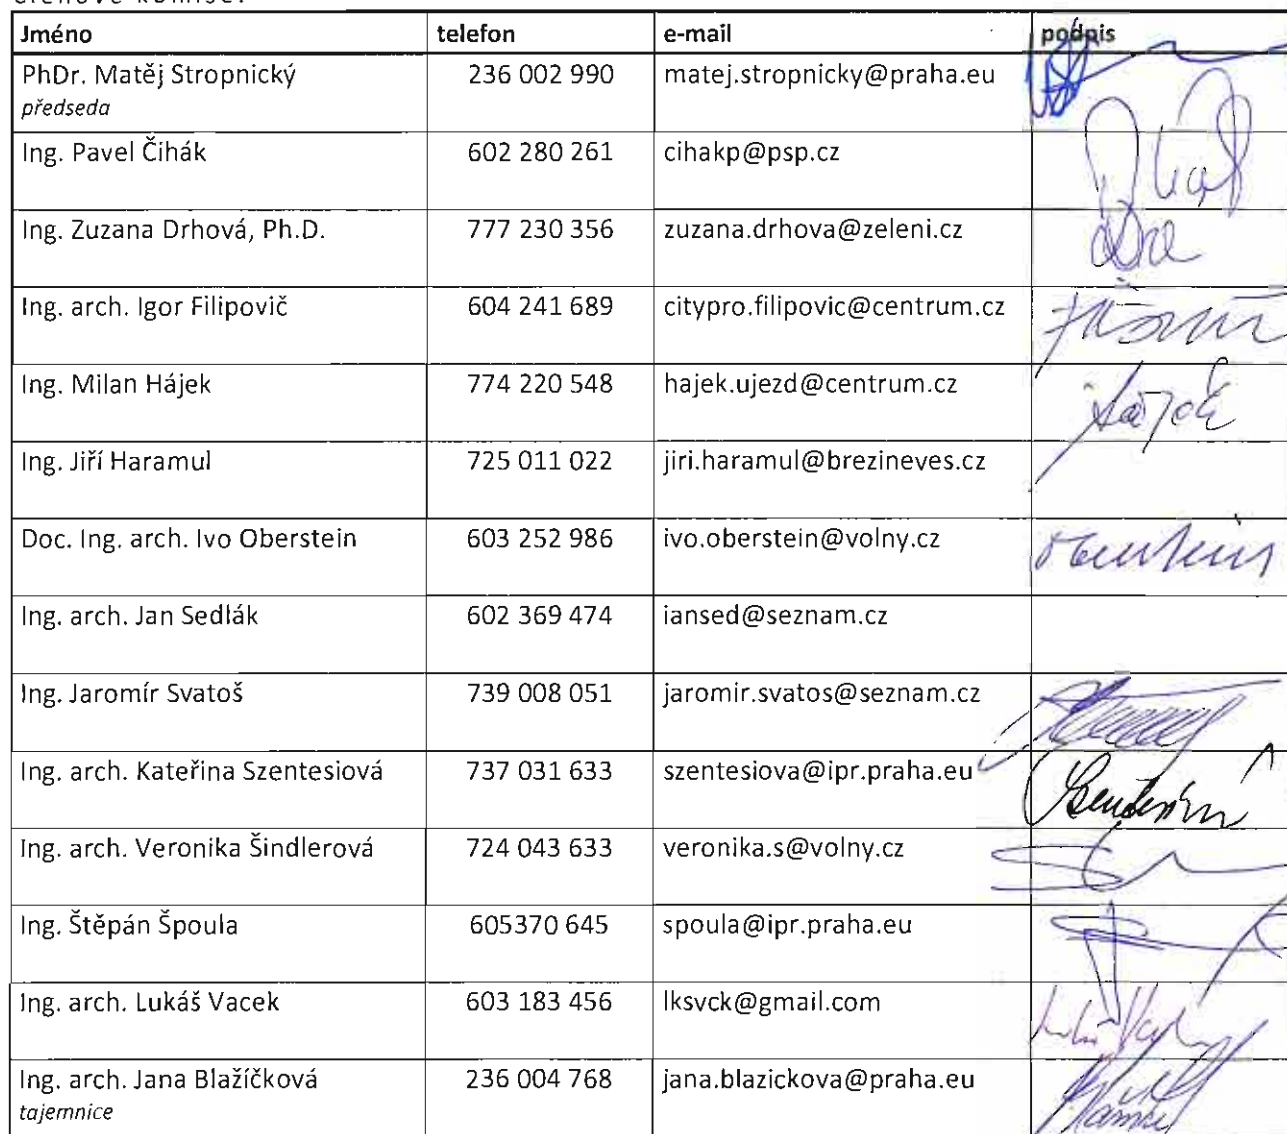 členové komise:
Jméno telefon e-mail podpis
PhDr. Matěj Stropnický 236 002 990 matej.stropnicky@praha.eu
předseda
Ing. Pavel Čihák 602 280 261 cihakp@psp.cz
Ing. Zuzana Drhová, Ph.D. 777 230 356 zuzana.drhova@zeleni.cz
Ing. arch. Igor Filipovič 604 241 689 citypro.filipovic@centrum.cz
Ing. Milan Hájek 774 220 548 hajek.ujezd@centrum.cz
Ing. Jiří Haramul 725 011 022 jiri.haramul@brezineves.cz
Doc. Ing. arch. Ivo Oberstein 603 252 986 ivo.oberstein@volny.cz
Ing. arch. Jan Sedlák 602 369 474 iansed@seznam.cz
Ing. Jaromír Svatoš 739 008 051 jaromir.svatos@seznam.cz
Ing. arch. Kateřina Szentesiová 737 031 633 szentesiova@ipr.praha.eu
Ing. arch. Veronika Šindlerová 724 043 633 veronika.s@volny.cz
Ing. Štěpán Špoula 605370 645 spoula@ipr.praha.eu
Ing. arch. Lukáš Vacek 603 183 456 lksvck@gmail.com
Ing. arch. Jana Blažíčková 236 004 768 jana.blazickova@praha.eu
tajemnice